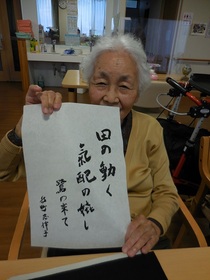 田の動く
氣配の嬉し
鷺の来て